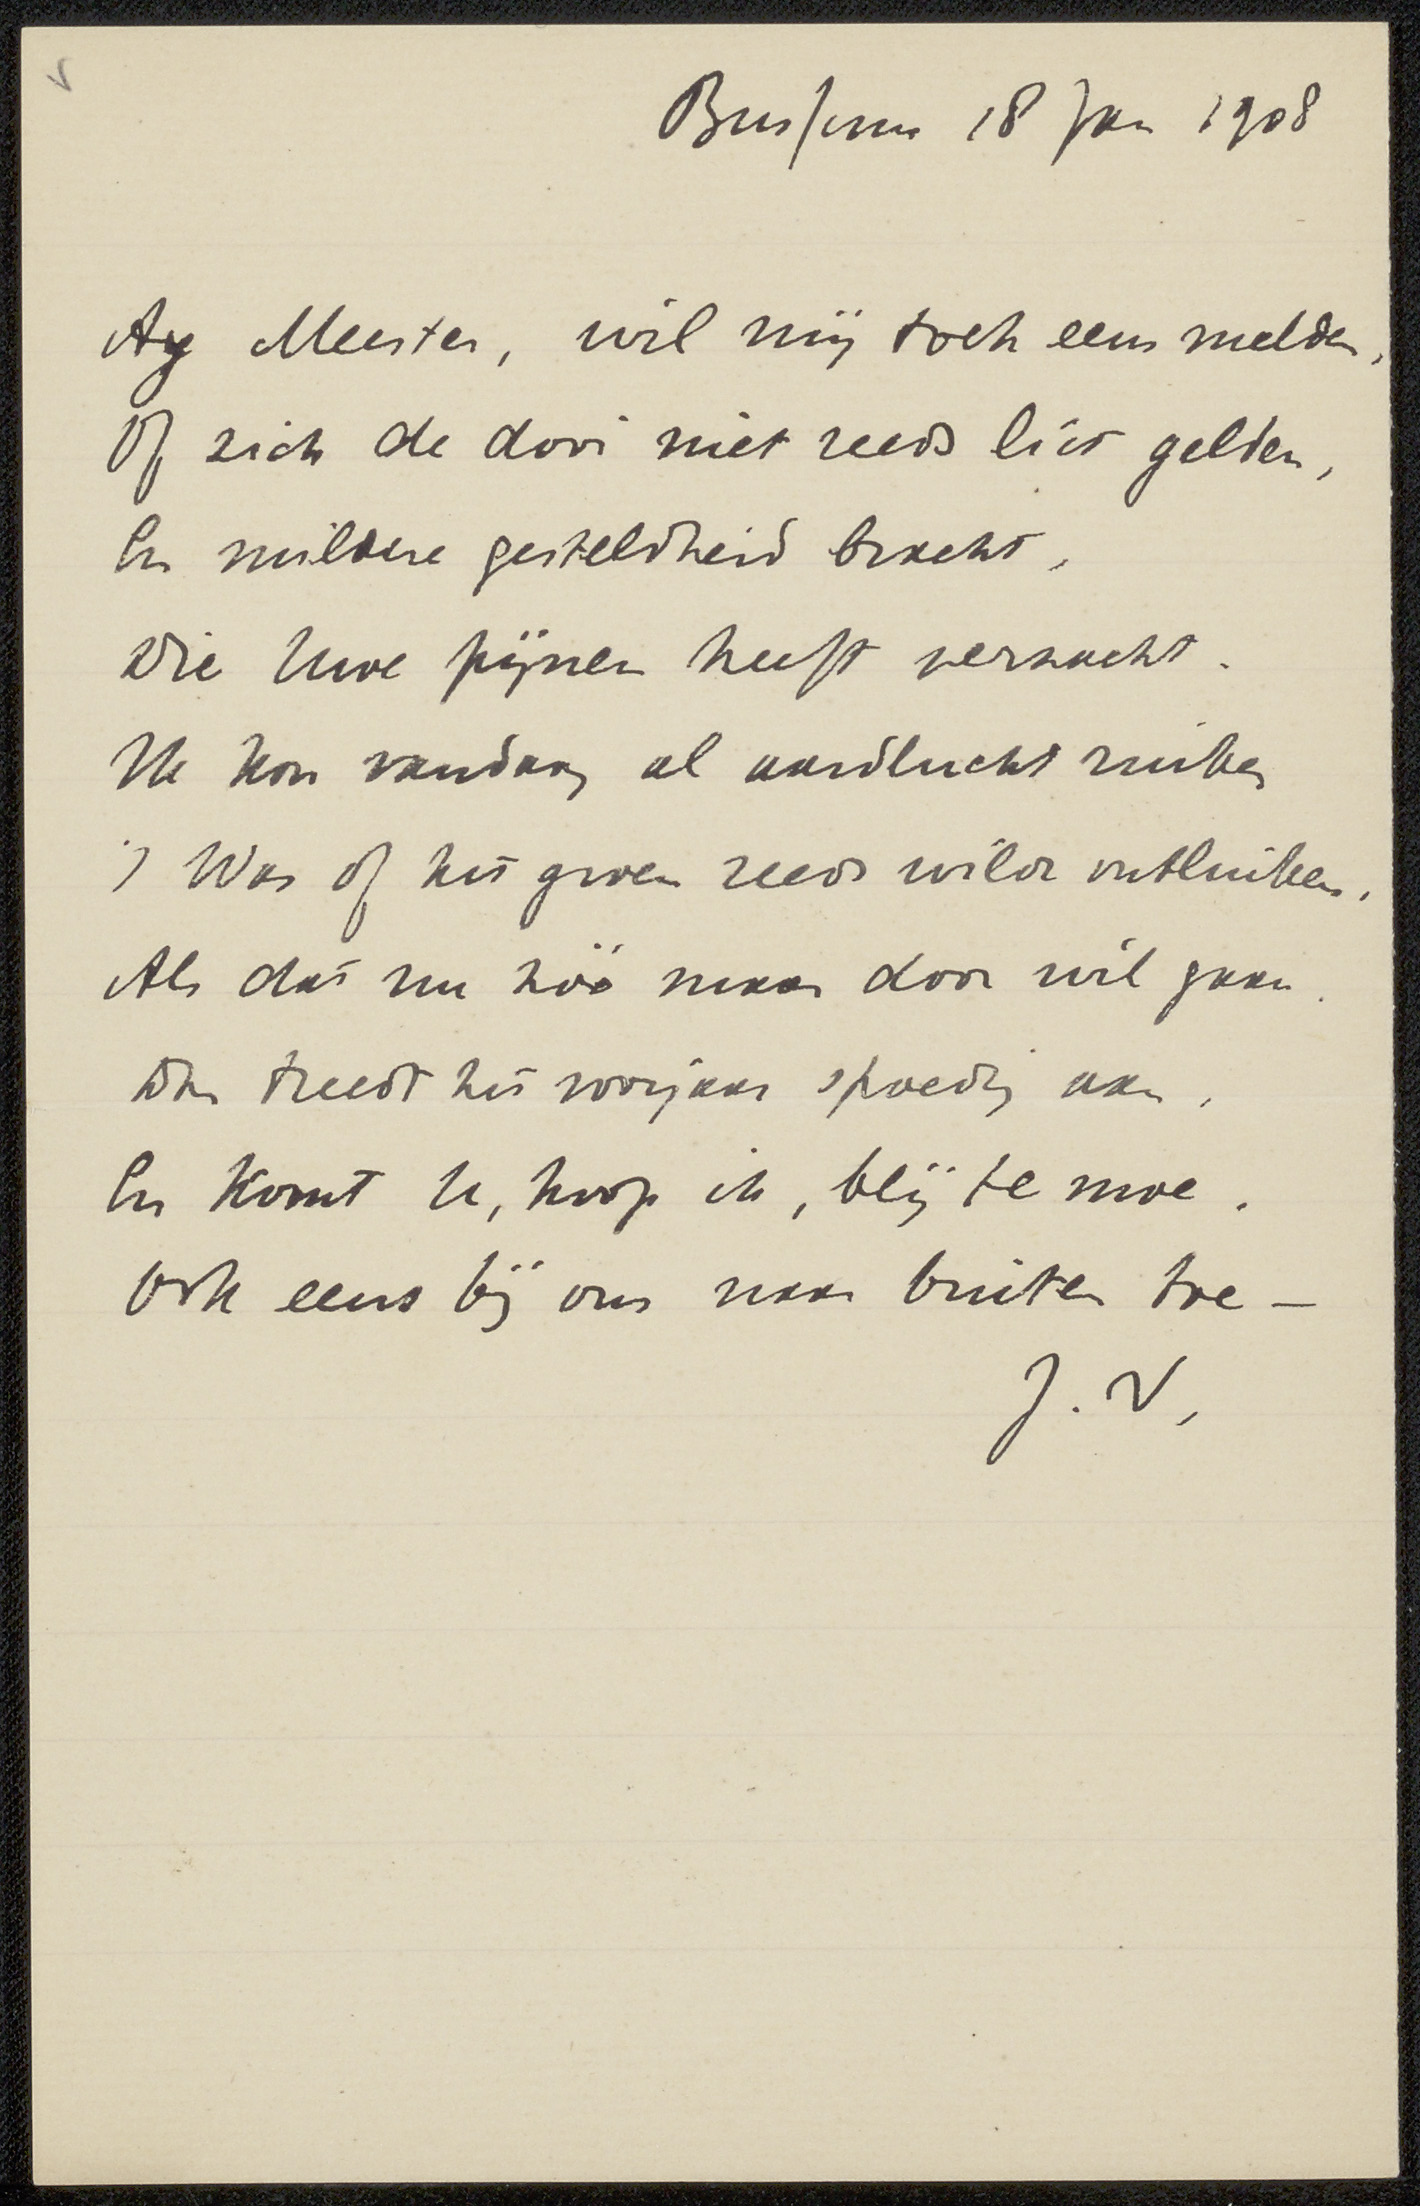 Bussum 18 Jan 1908
Ay Meester, wil mij toch eens melden,
Of zich de dooi niet reeds liet gelden,
En mildere gesteldheid bracht,
Die Uwe pijnen heeft verzacht.
Ik kon vandaag al aardlucht ruiken
't Was of het groen reeds wilde ontluiken,
Als dat nu zóó maar door wil gaan.
Dan treedt het voorjaar spoedig aan,
En komt U, hoop ik, blij te moe.
Ook eens bij ons naar buiten toe —
J. V,